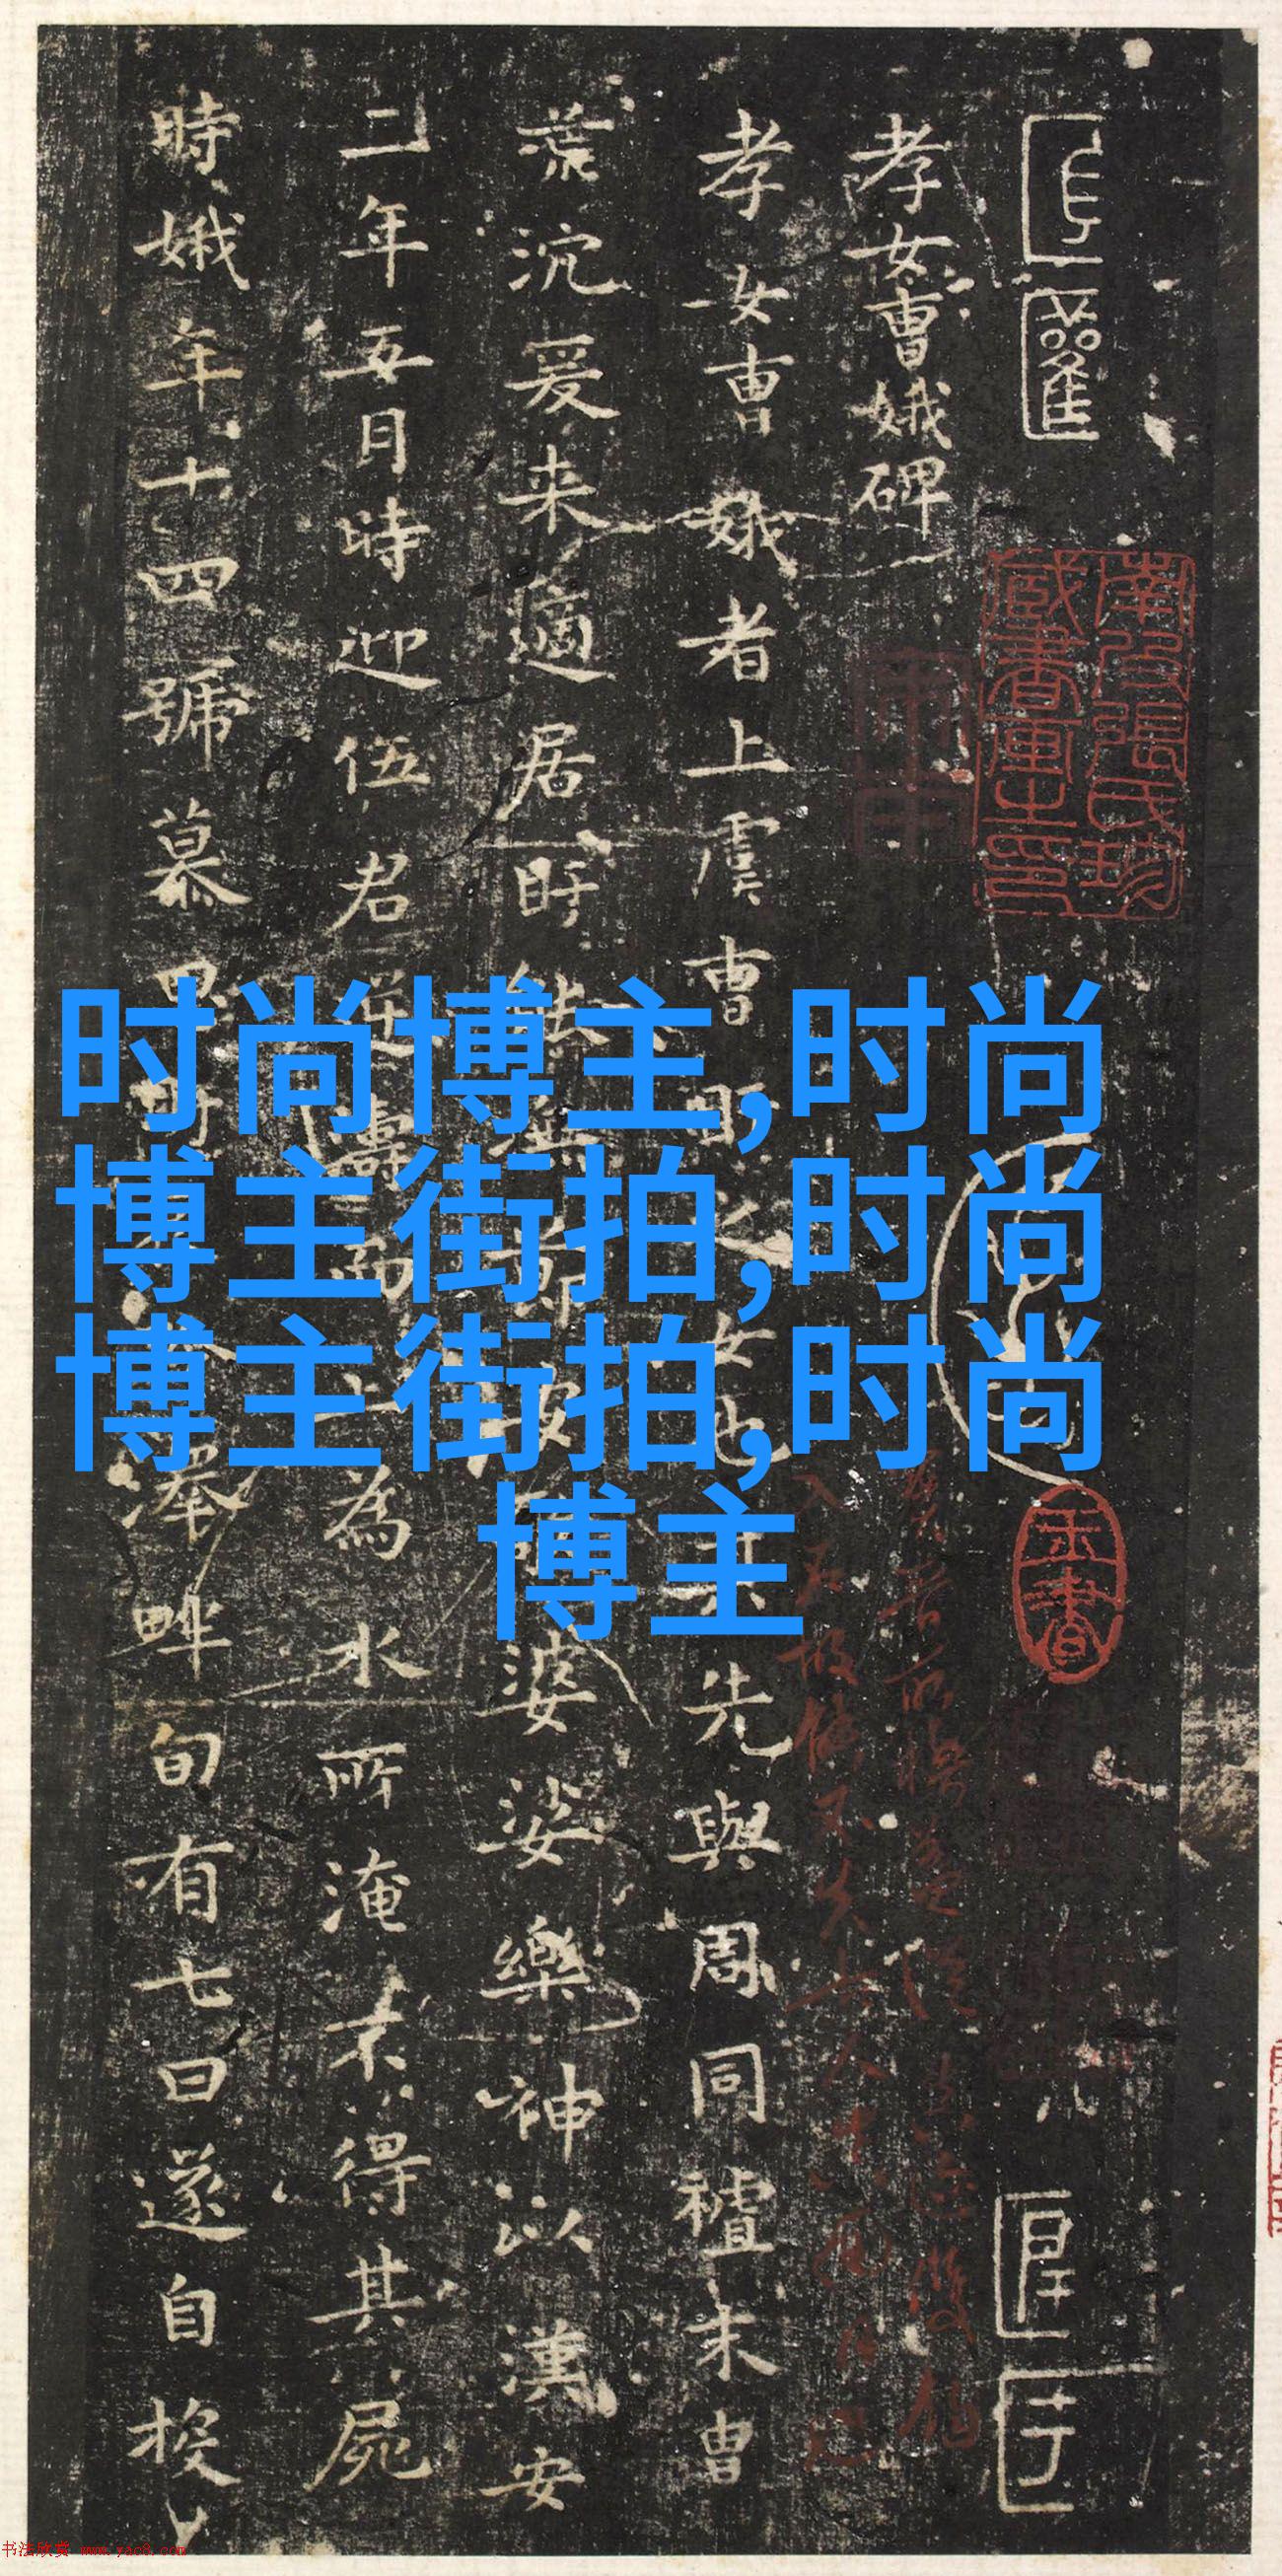 孝女曹娥碑
孝女曹娥者上虞曹盱之女也其先與周同祖末胄
荒沉爰来適居盱能撫節按歌婆娑樂神以漢安
二年五月時迎伍君逆濤而上為水所淹不得其屍
時娥年十四號慕思盱哀吟澤畔旬有七日遂自投
时尚博主,时尚
博主街拍,时尚
博主街拍,时尚
博主
书法欣赏 www.yac8.com